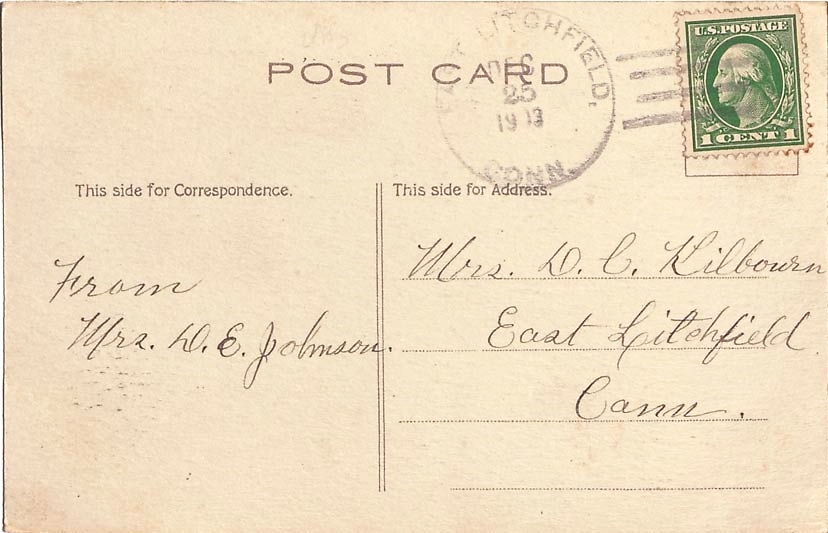 POST CARD
EAST LITCHFIELD,
DEC
25
1913
CONN.
U.S. POSTAGE
1 CENT 1
This side for Correspondence.
This side for Address.
From
Mrs. D. E. Johnson.
Mrs. D. C. Kilbourn
East Litchfield
Conn.